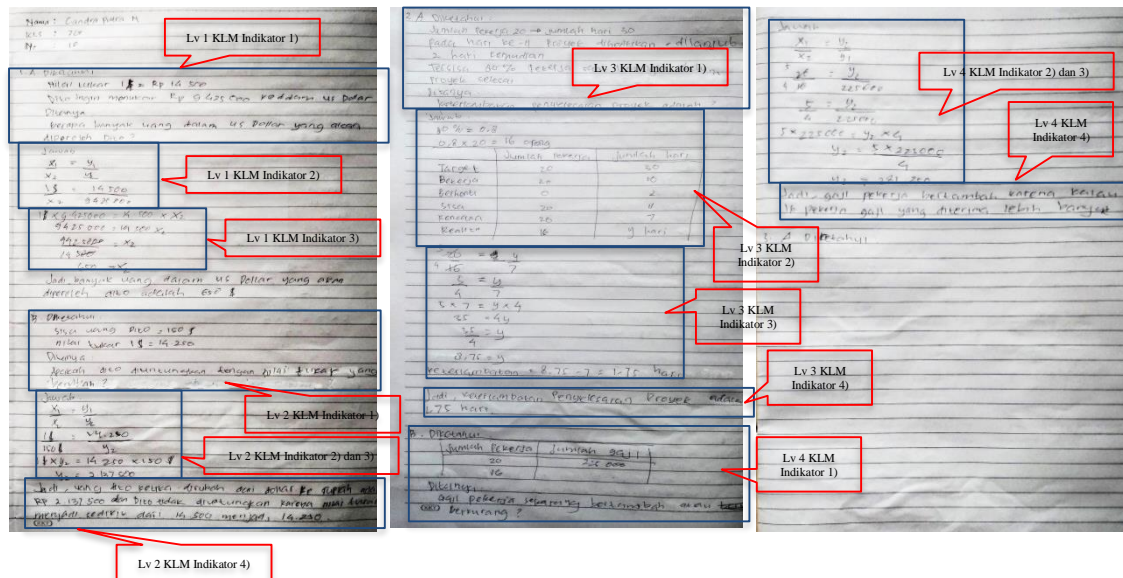 Nama : Candra Putra M
Lv 1 KLM Indikator 1)
1. A. Diketahui
Nilai tukar 1$ = Rp 14.500
Dito ingin menukar Rp 9.425.000 kedalam US Dolar
Ditanya
Berapa banyak uang dalam US Dollar yang akan
diperoleh Dito ?
Jawab
x₁ = y₁
x₂ y₂
Lv 1 KLM Indikator 2)
1$ = 14.500
x₂ 9425000
1$ x 9.425000 = 14.500 x x₂
9425000 = 14.500 x₂
9425000 = x₂
14.500
650 = x₂
Lv 1 KLM Indikator 3)
Jadi banyak uang dalam US Dollar yang akan
diperoleh dito adalah 650 $
B. Diketahui
Sisa uang Dito = 150 $
nilai tukar 1$ = 14.250
Ditanya
Apakah dito diuntungkan dengan nilai tukar yang
berubah ?
Lv 2 KLM Indikator 1)
Jawab
x₁ = y₁
x₂ y₂
1$ = 14.250
150$ y₂
1$ x y₂ = 14.250 x 150 $
y₂ = 2.137.500
Lv 2 KLM Indikator 2) dan 3)
Jadi uang dito ketika dirubah dari dollar ke rupiah
Rp 2.137.500 dan Dito tidak diuntungkan karena nilai
menjadi sedikit dari 14.500 menjadi 14.250
Lv 2 KLM Indikator 4)
2. A. Diketahui
Jumlah pekerja 20 → Jumlah hari 30
Pada hari ke-11 Proyek dihentikan
2 hari kemudian
Tersisa 80%
Proyek selesai
Ditanya
Keterlambatan penyelesaian proyek adalah ?
Lv 3 KLM Indikator 1)
Jawab
80 % = 0.8
0.8 x 20 = 16 orang
Jumlah pekerja Jumlah hari
Target 20 30
Bekerja 20 10
Berhenti 0 2
Sisa 20 11
Rencana 20 7
Realita 16 y hari
Lv 3 KLM
Indikator 2)
5 20 = y
4 16 7
5 = y
4 7
5 x 7 = y x 4
35 = 4y
35 = y
4
8.75 = y
Keterlambatan = 8.75 - 7 = 1.75 hari
Lv 3 KLM
Indikator 3)
Jadi, keterlambatan Penyelesaian Proyek adalah
1.75 hari
Lv 3 KLM
Indikator 4)
B. Diketahui
Jumlah Pekerja Jumlah gaji
20 225 000
16
Ditanya
Gaji pekerja sekarang bertambah atau
berkurang ?
Lv 4 KLM
Indikator 1)
Jawab
x₁ = y₂
x₂ y₁
5 20 = y₂
4 16 225000
5 = y₂
4 225000
5 x 225000 = y₂ x 4
y₂ = 5 x 225000
4
y₂ = 281.250
Lv 4 KLM Indikator 2) dan 3)
Lv 4 KLM
Indikator 4)
Jadi gaji pekerja bertambah karena kalau
16 pekerja gaji yang diterima lebih banyak
3. A Diketahui